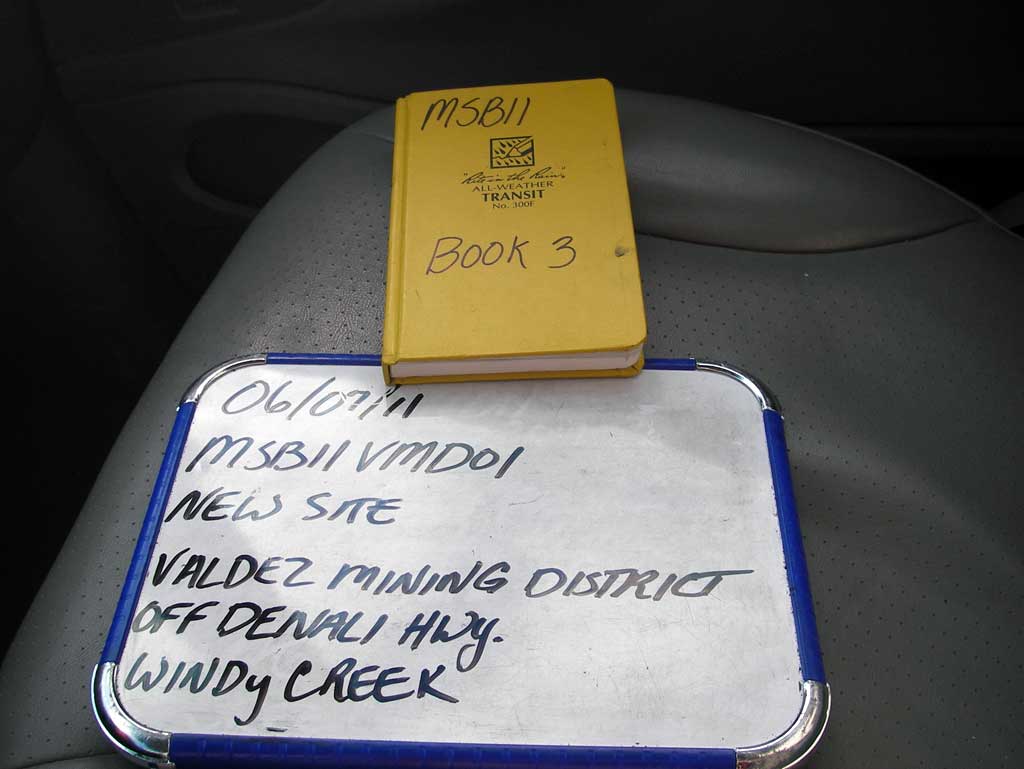 MSB11
"Rite in the Rain"
ALL-WEATHER
TRANSIT
No. 300F
BOOK 3
06/07/11
MSB11VMD01
NEW SITE
VALDEZ MINING DISTRICT
OFF DENALI HWy.
WINDy CREEK